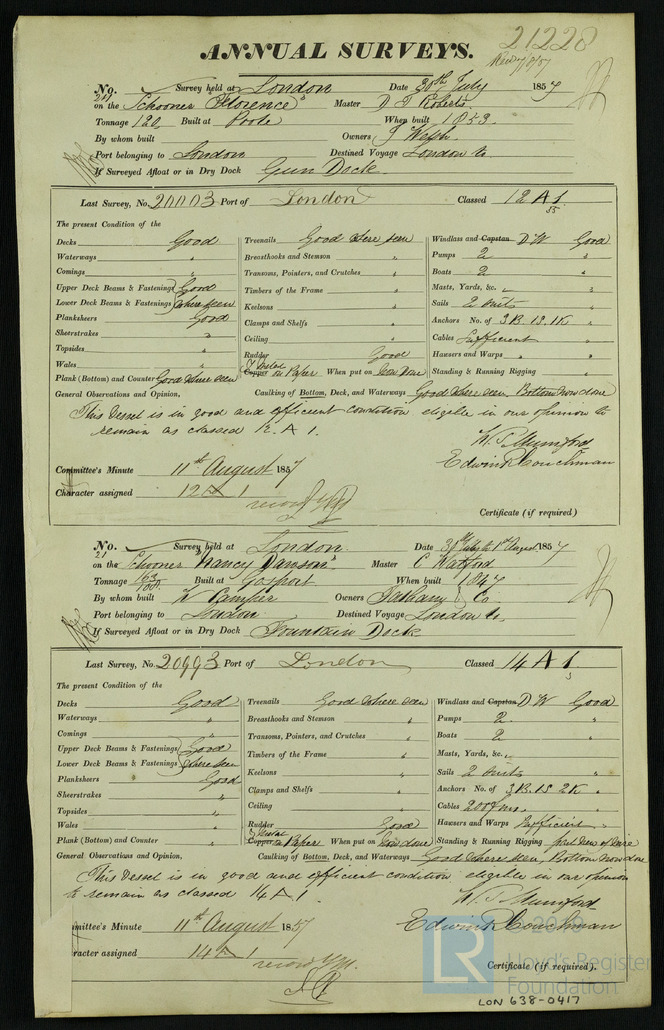 21228
ANNUAL SURVEYS.
No. 211 Survey held at London Date 30th July 1857
on the Schooner "Florence" Master D T Roberts
Tonnage 120 Built at Poole When built 1853
By whom built Owners J Welsh
Port belonging to London Destined Voyage London to
If Surveyed Afloat or in Dry Dock Gun Dock
Last Survey, No. 20003 Port of London Classed 12 A 1 55
The present Condition of the
Decks Good Treenails Good where seen Windlass and Capstan D W Good
Waterways " Breasthooks and Stemson " Pumps 2 "
Comings " Transoms, Pointers, and Crutches " Boats 2 "
Upper Deck Beams & Fastenings Good Timbers of the Frame " Masts, Yards, &c. "
Lower Deck Beams & Fastenings where seen Keelsons " Sails 2 suits "
Planksheers Good Clamps and Shelfs " Anchors No. of 3B. 1S. 1K "
Sheerstrakes " Ceiling " Cables Sufficient "
Topsides " Rudder Good Hawsers and Warps " "
Wales " Y Metal Copper on Paper When put on Now done Standing & Running Rigging "
Plank (Bottom) and Counter Good where seen
General Observations and Opinion, Caulking of Bottom, Deck, and Waterways Good where seen, Bottom now done
This Vessel is in good and efficient condition eligible in our opinion to
remain as classed 12 A 1.
W. T. Mumford
Edwin R Couchman
Committee's Minute 11th August 1857
Character assigned 12 A 1
Certificate (if required)
No. 21 Survey held at London Date 31st July to 1st August 1857
on the Schooner "Nancy Dawson" Master C Watford
Tonnage 163 Built at Gosport When built 1847
By whom built W Camper Owners & Co
Port belonging to London Destined Voyage London to
If Surveyed Afloat or in Dry Dock Fountain Dock
Last Survey, No. 20993 Port of London Classed 14 A 1.
The present Condition of the
Decks Good Treenails Good where seen Windlass and Capstan D W Good
Waterways " Breasthooks and Stemson " Pumps 2 "
Comings " Transoms, Pointers, and Crutches " Boats 2 "
Upper Deck Beams & Fastenings Good Timbers of the Frame " Masts, Yards, &c. "
Lower Deck Beams & Fastenings where seen Keelsons " Sails 2 suits "
Planksheers Good Clamps and Shelfs " Anchors No. of 3B. 1S 2K "
Sheerstrakes " Ceiling " Cables 200 fms. "
Topsides " Rudder Good Hawsers and Warps Sufficient "
Wales " Y Metal Copper on Paper When put on Now done Standing & Running Rigging
Plank (Bottom) and Counter "
General Observations and Opinion, Caulking of Bottom, Deck, and Waterways Good where seen, Bottom now done
This Vessel is in good and efficient condition eligible in our opinion
to remain as classed 14 A 1
W. T. Mumford
Edwin R Couchman
mmittee's Minute 11th August 1857
racter assigned 14 A 1
Certificate (if required).
LR
Lloyd's Register
Foundation
LON 638-0417